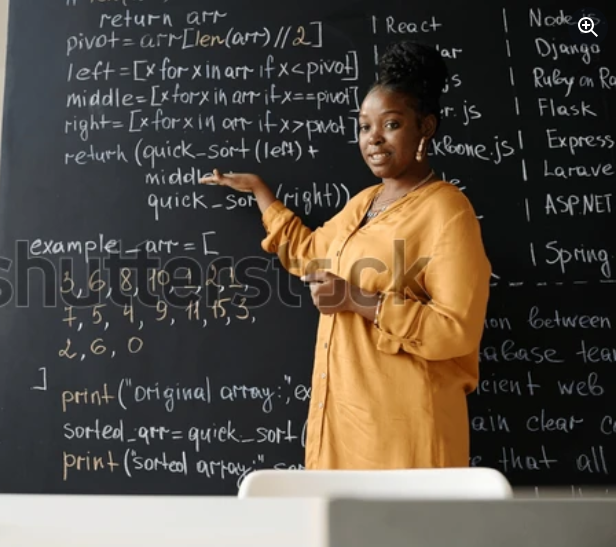 return arr
pivot = arr[len(arr)//2]
left = [x for x in arr if x < pivot]
middle = [x for x in arr if x == pivot]
right = [x for x in arr if x > pivot]
return (quick_sort (left) +
middle
quick_sor (right))
example_arr = [
3, 6, 8, 10, 1, 2, 1,
7, 5, 4, 9, 11, 15, 3,
2, 6, 0
]
print ("original array:", ex
sorted_arr = quick_sort (
print ("sorted array:"
| React
ar
js
r.js
kbone.js
| Node.js
| Django
| Ruby on Ra
| Flask
| Express
| Larave
| ASP.NET
| Spring
on between
abase tea
cient web
ain clear c
e that all
shutterstock